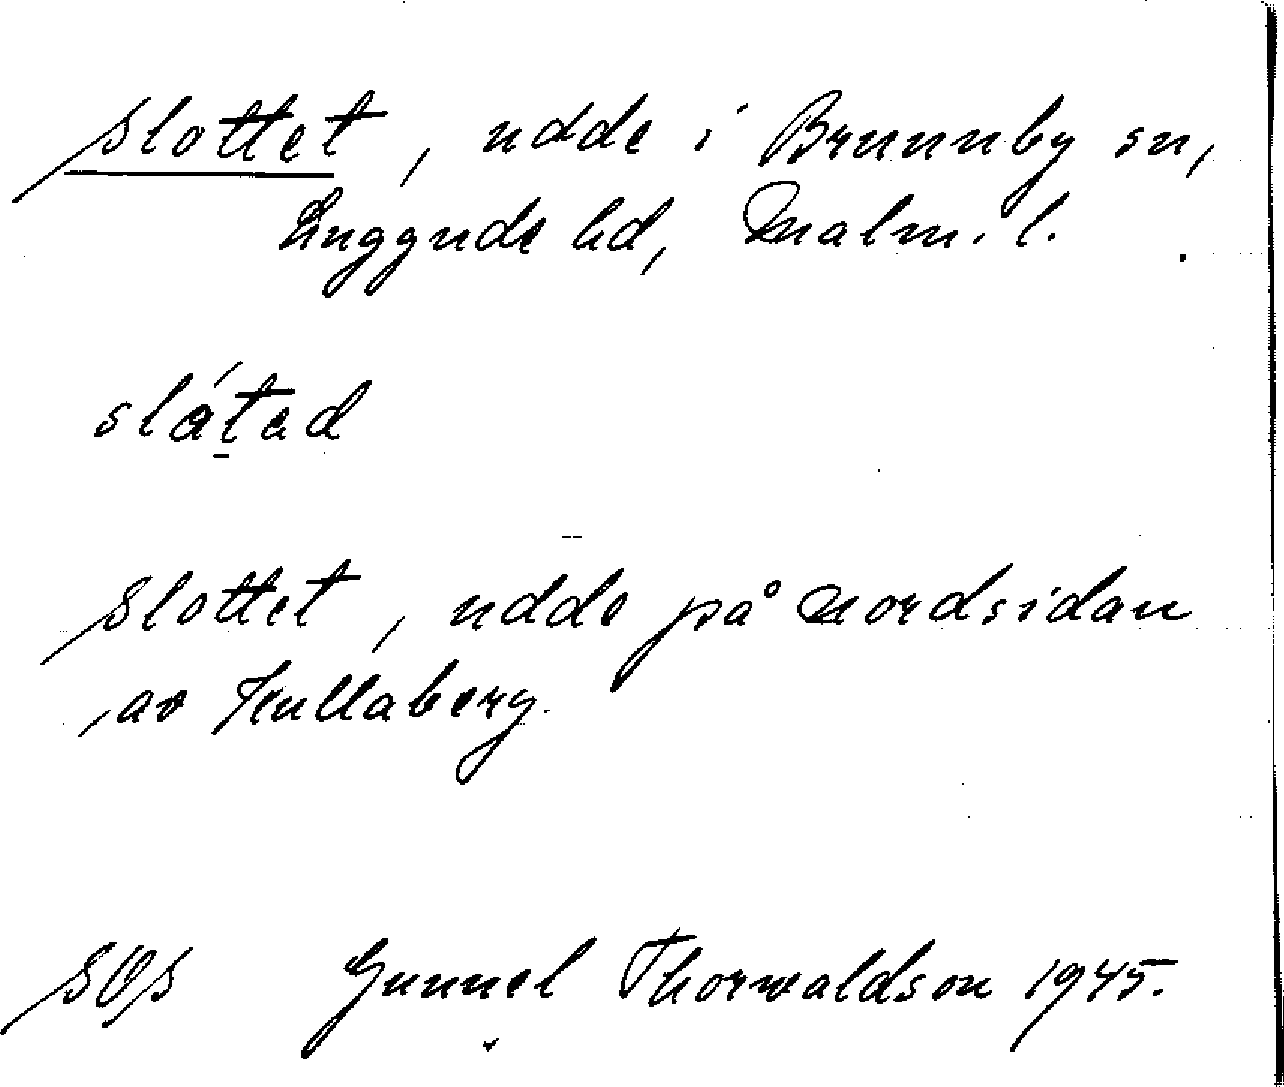 Slottet, udde i Brunnby sn,
Luggude hd, Malm. l.
slát̠ad
Slottet, udde på Nordsidan
av Kullaberg.
SOS Gunnel Thorwaldson 1945.